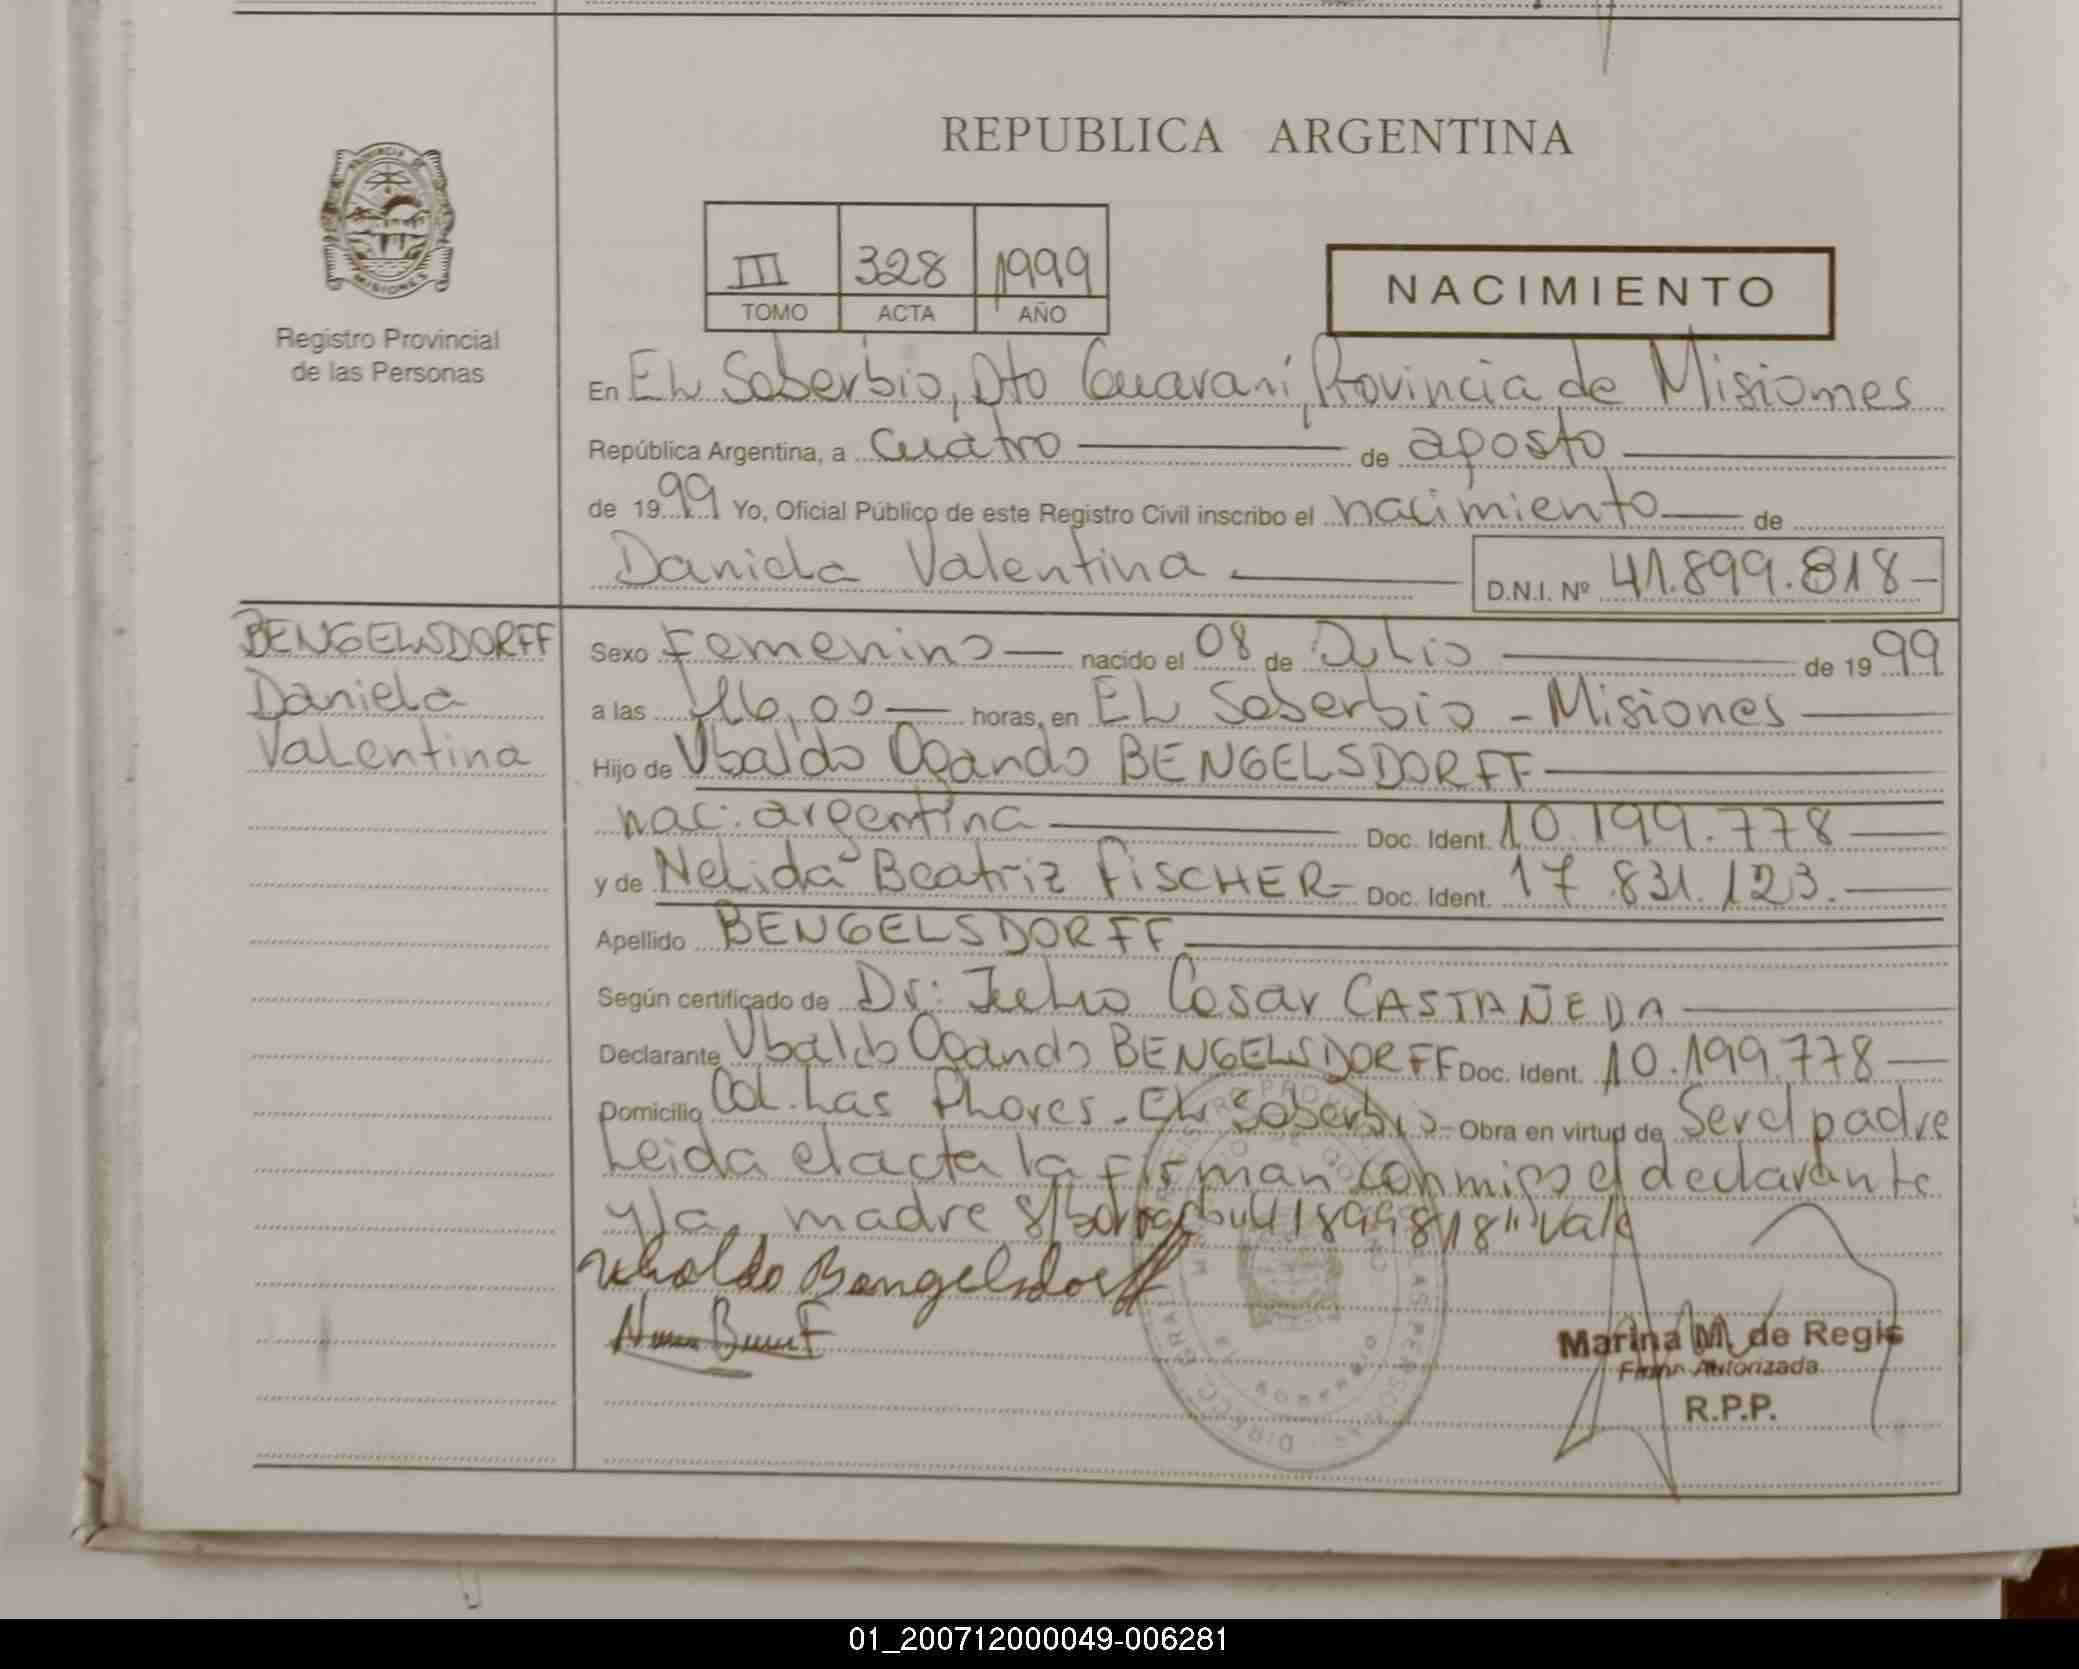 REPUBLICA ARGENTINA
PROVINCIA DE
MISIONES
Registro Provincial
de las Personas
III 328 1999
TOMO ACTA AÑO
NACIMIENTO
En EL Soberbio, Dto Guaraní, Provincia de Misiones
República Argentina, a cuatro de agosto
de 1999 Yo, Oficial Público de este Registro Civil inscribo el nacimiento de
Daniela Valentina D.N.I. Nº 41.899.818
BENGELSDORFF
Daniela
Valentina
Sexo Femenino nacido el 08 de Julio de 1999
a las 16,00 horas, en EL Soberbio - Misiones
Hijo de Ubaldo Ogando BENGELSDORFF
nac: argentina Doc. Ident. 10.199.778
y de Nelida Beatriz FISCHER Doc. Ident. 17.831.123.
Apellido BENGELSDORFF
Según certificado de Dr: Julio Cesar CASTAÑEDA
Declarante Ubaldo Ogando BENGELSDORFF Doc. Ident. 10.199.778
Domicilio Col. Las Flores - EL Soberbio - Obra en virtud de Ser el padre
Leida el acta la firman conmigo el declarante
y la madre s/borrado "41899818" Vale
Ubaldo Bengelsdorff
Marina M. de Regis
Firma Autorizada
R.P.P.
01_200712000049-006281